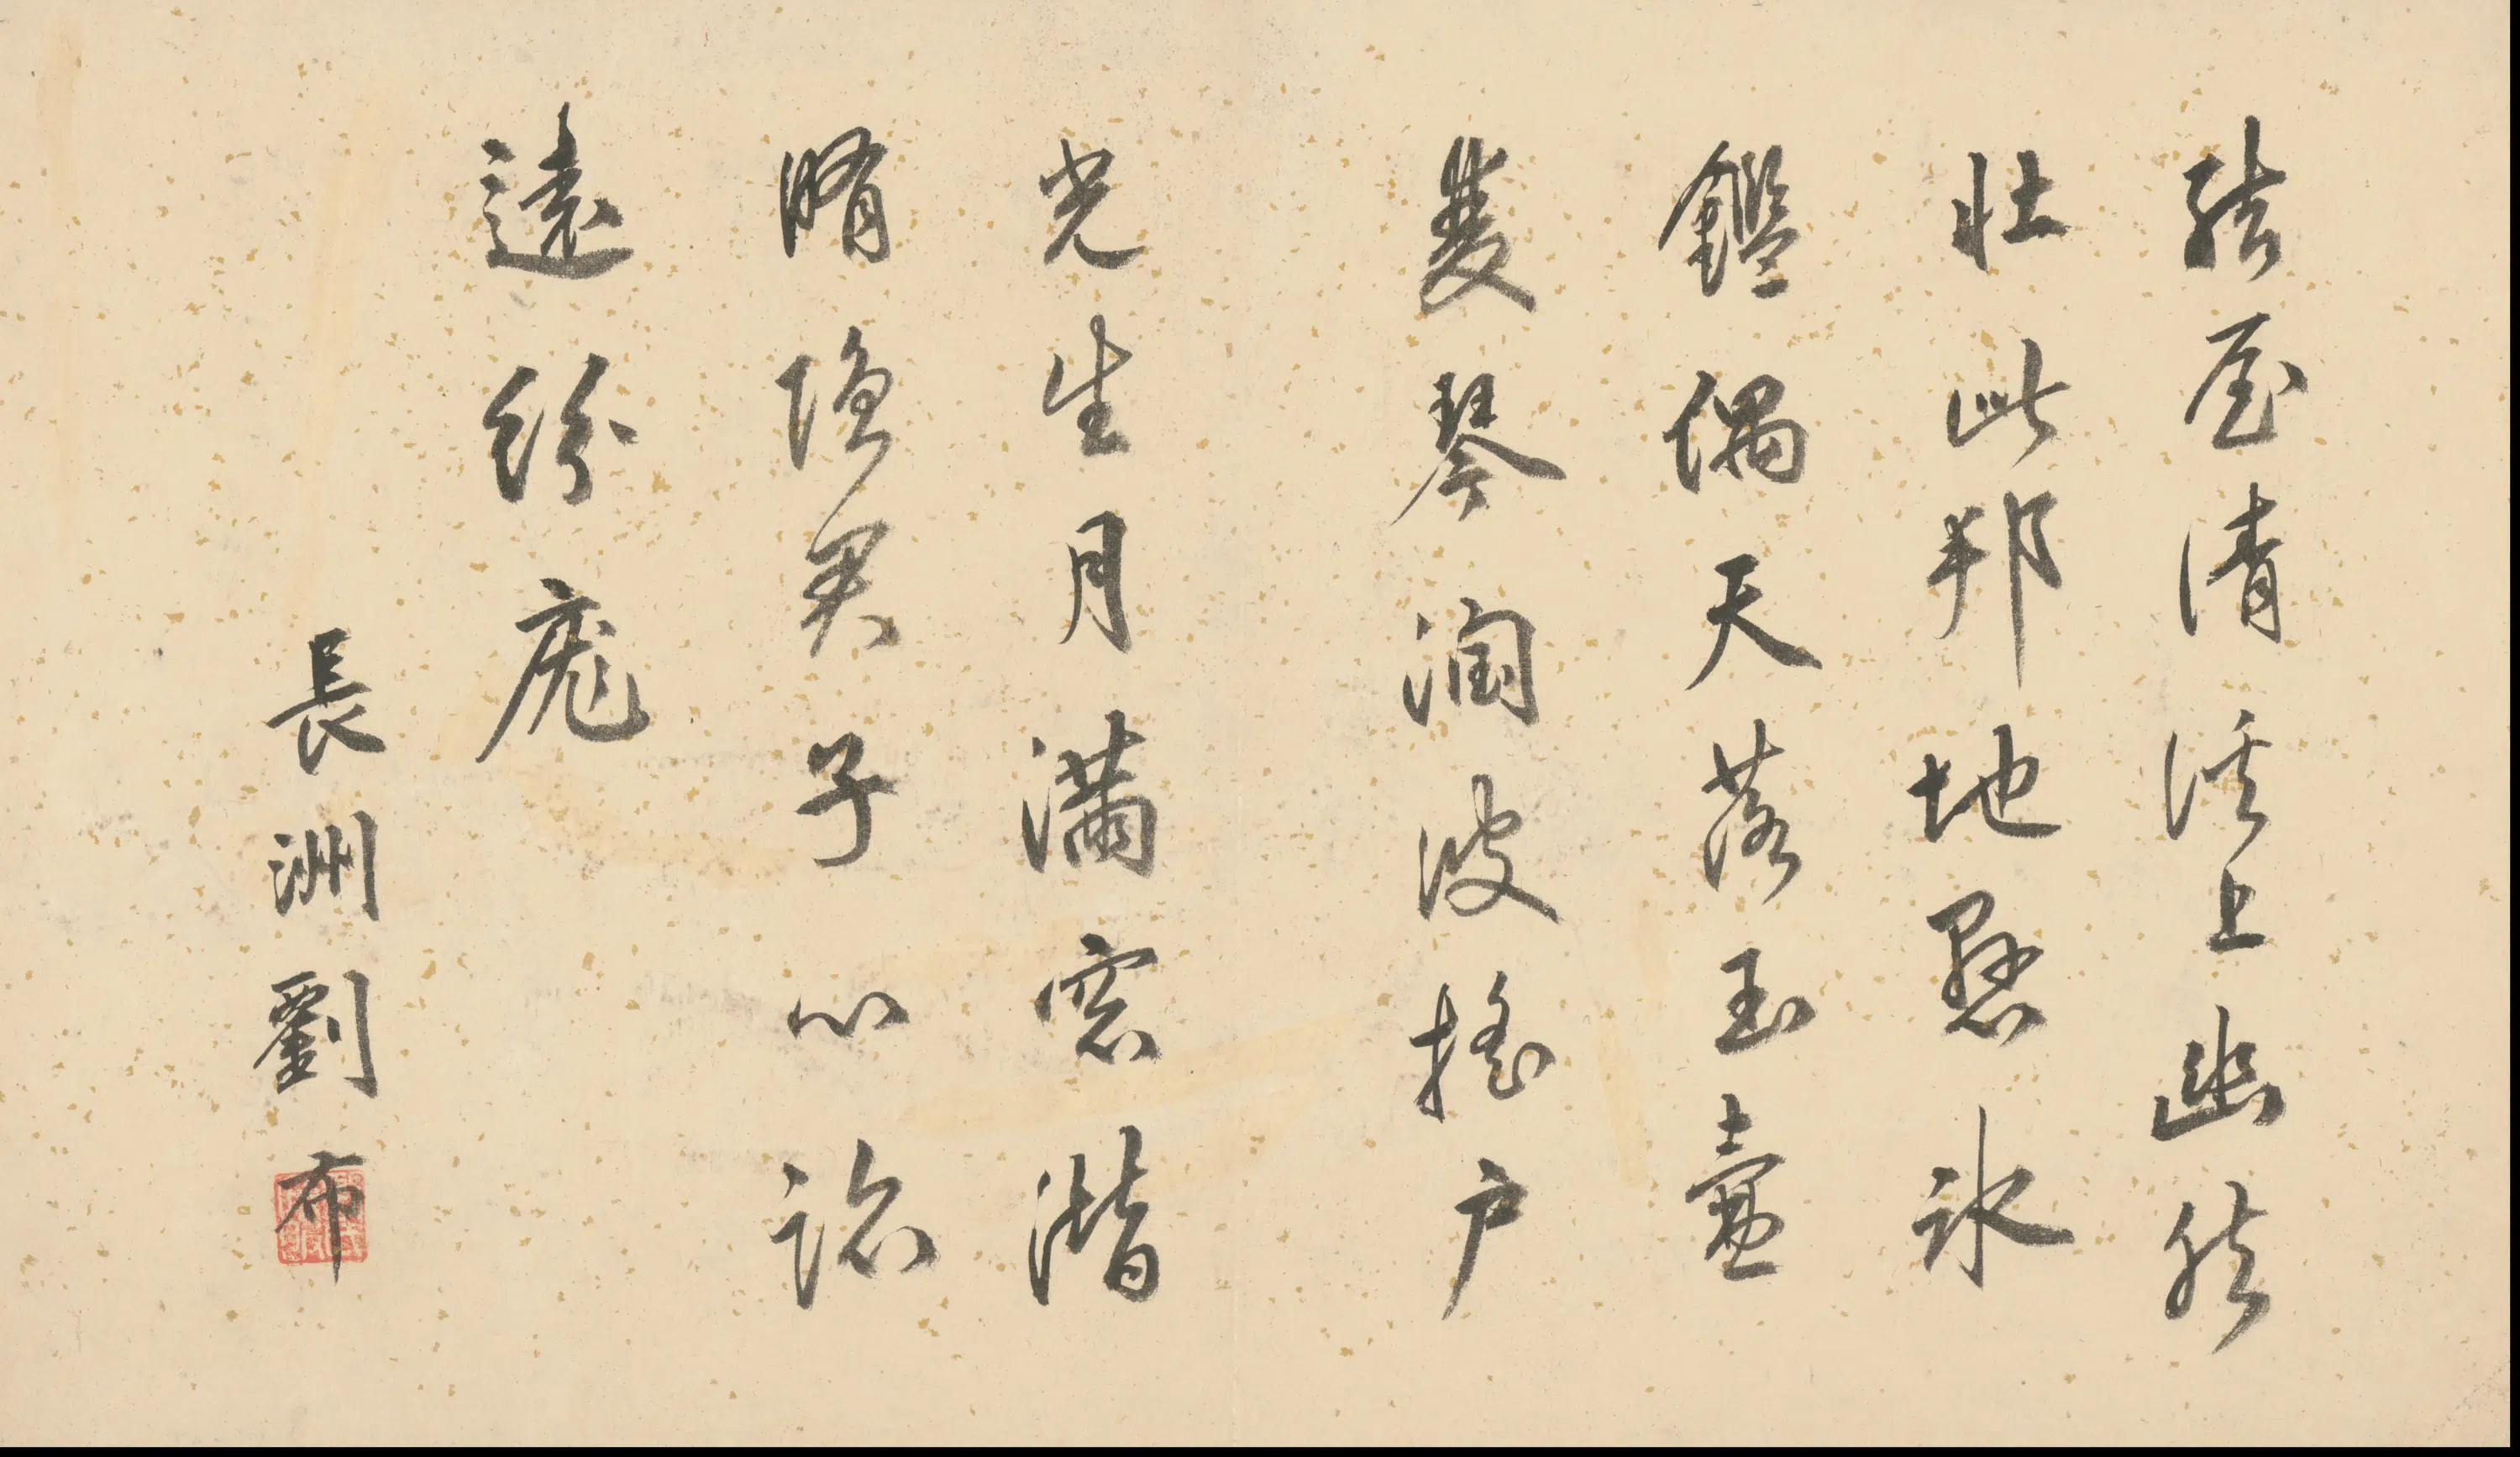 結屋清溪上幽然
壯此邦地懸氷
鑑偶天落玉壺
雙琴潤波搖戶
光生月滿窓潛
脩隱君子心詠
遠紛厖
長洲劉布